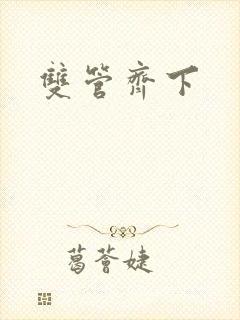 雙管齊下
葛薈婕